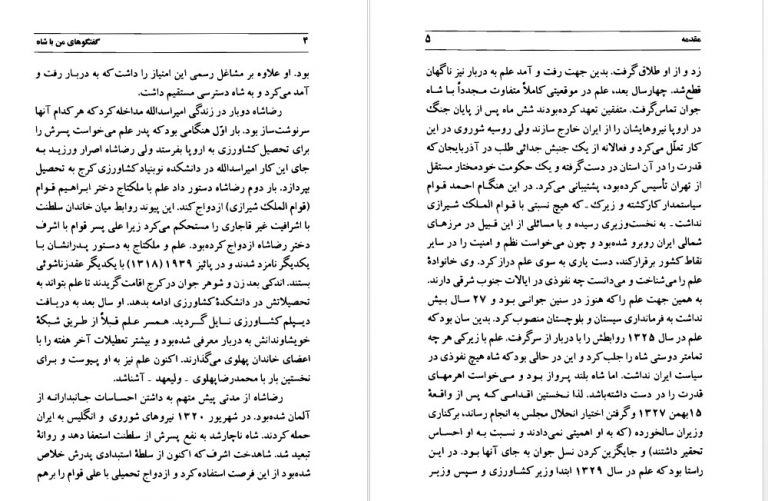 ۴ گفتگوهای من با شاه
بود. او علاوه بر مشاغل رسمی این امتیاز را داشت‌که به دربار رفت و
آمد می‌کرد و به شاه دسترسی مستقیم داشت.
رضاشاه دوبار در زندگی امیراسدالله مداخله‌کرد که هرکدام آنها
سرنوشت‌ساز بود. بار اوّل هنگامی بودکه پدر علم می‌خواست پسرش را
برای تحصیل کشاورزی به اروپا بفرستد ولی رضاشاه اصرار ورزید به
جای این کار امیراسدالله در دانشکده نوبنیاد کشاورزی کرج به تحصیل
بپردازد. بار دوم رضاشاه دستور داد علم با ملکتاج دختر ابراهیم قوام
(قوام الملک شیرازی) ازدواج کند. این پیوند روابط میان خاندان سلطنت
با اشرافیت غیر قاجاری را مستحکم می‌کرد زیرا علی پسر قوام با اشرف
دختر رضاشاه ازدواج کرده‌بود. علم و ملکتاج به دستور پدرانشان با
یکدیگر نامزد شدند و در پائیز ۱۹۳۹ (۱۳۱۸) با یکدیگر عقدزناشوئی
بستند. اندکی بعد زن و شوهر جوان در کرج اقامت‌گزیدند تا علم بتواند به
تحصیلاتش در دانشکدهٔ کشاورزی ادامه بدهد. او سال بعد به دریافت
دیپلم کشاورزی نایل گردید. همسر علم قبلاً از طریق شبکهٔ
خویشاوندانش به دربار معرفی شده‌بود و بیشتر تعطیلات آخر هفته را با
اعضای خاندان پهلوی می‌گذارند. اکنون علم نیز به او پیوست و برای
نخستین بار با محمدرضاپهلوی ـ ولیعهد ـ آشناشد.
رضاشاه از مدتی پیش متهم به داشتن احساسات جانبدارانه از
آلمان شده‌بود. در شهریور ۱۳۲۰ نیروهای شوروی و انگلیس به ایران
حمله کردند. شاه ناچارشد به نفع پسرش از سلطنت استعفا دهد و روانهٔ
تبعید شد. شاهدخت اشرف‌که اکنون از سلطهٔ استبدادی پدرش خلاص
شده‌بود از این فرصت استفاده کرد و ازدواج تحمیلی با علی قوام را برهم
مقدمه ۵
زد و از او طلاق‌گرفت. بدین جهت رفت و آمد علم به دربار نیز ناگهان
قطع‌شد. چهارسال بعد، علم در موقعیتی کاملاً متفاوت مجدداً با شاه
جوان تماس‌گرفت. متفقین تعهد کرده‌بودند شش ماه پس از پایان جنگ
در اروپا نیروهایشان را از ایران خارج سازند ولی روسیه شوروی در این
کار تعلّل می‌کرد و فعالانه از یک جنبش جدائی طلب در آذربایجان‌که
قدرت را در آن استان در دست‌گرفته و یک حکومت خودمختار مستقل
از تهران تأسیس کرده‌بود، پشتیبانی می‌کرد. در این هنگام احمد قوام
سیاستمدار کارکشته و زیرک ـ که هیچ نسبتی با قوام الملک شیرازی
نداشت ـ به نخست‌وزیری رسیده و با مسائلی از این قبیل در مرزهای
شمالی ایران روبرو شده‌بود و چون می‌خواست نظم و امنیت را در سایر
نقاط کشور برقرارکند، دست یاری به سوی علم دراز کرد. وی خانوادهٔ
علم را می‌شناخت و می‌دانست چه نفوذی در ایالات جنوب شرقی دارند.
به همین جهت علم راکه هنوز در سنین جوانی بود و ۲۷ سال بیش
نداشت به فرمانداری سیستان و بلوچستان منصوب کرد. بدین سان بود که
علم در سال ۱۳۲۵ روابطش را با دربار از سرگرفت. علم با زیرکی هر چه
تمامتر دوستی شاه را جلب کرد و این در حالی بودکه شاه هیچ نفوذی در
سیاست ایران نداشت. اما شاه بلند پرواز بود و می‌خواست اهرمهای
قدرت را در دست داشته‌باشد. لذا نخستین اقدامی که پس از واقعهٔ
۱۵بهمن ۱۳۲۷ و گرفتن اختیار انحلال مجلس به انجام رساند، برکناری
وزیران سالخورده (که به او اهمیتی نمی‌دادند و نسبت به او احساس
تحقیر داشتند) و جایگزین کردن نسل جوان به جای آنها بود. در این
راستا بود که علم در سال ۱۳۲۹ ابتدا وزیر کشاورزی و سپس وزیر